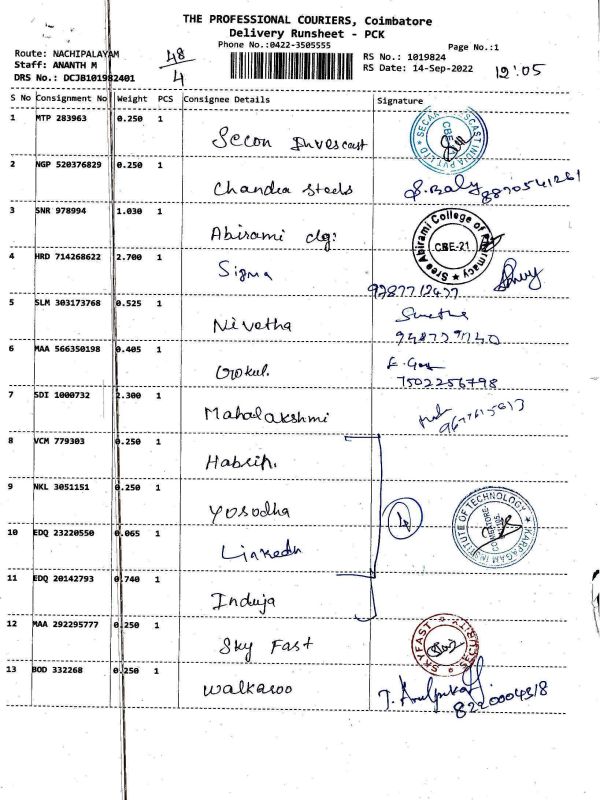 THE PROFESSIONAL COURIERS, Coimbatore
Delivery Runsheet - PCK
Phone No.:0422-3505555
Page No.:1
Route: NACHIPALAYAM
Staff: ANANTH M
DRS No.: DCJB101982401
48/4
RS No.: 1019824
RS Date: 14-Sep-2022
12:05
S No Consignment No Weight PCS Consignee Details Signature
1 MTP 283963 0.250 1
Secon Invescast
2 NGP 520376829 0.250 1
Chandra Steels
8870541261
3 SNR 978994 1.030 1
Abirami clg:
Sree Abirami College of Pharmacy
CBE-21
4 HRD 714268622 2.700 1
Sigma
9287712437
5 SLM 303173768 0.525 1
Nivetha
6 MAA 566350198 0.405 1
Gokul.
7502256798
7 SDI 1000732 2.300 1
Mahalakshmi
8 VCM 779303 0.250 1
9 NKL 3051151 0.250 1
Yosodha
4
KARPAGAM INSTITUTE OF TECHNOLOGY
10 EDQ 23220550 0.065 1
11 EDQ 20142793 0.740 1
Induja
12 MAA 292295777 0.250 1
Sky Fast
SKYFAST SECURITY
13 BOD 332268 0.250 1
Walkaroo
8220004518